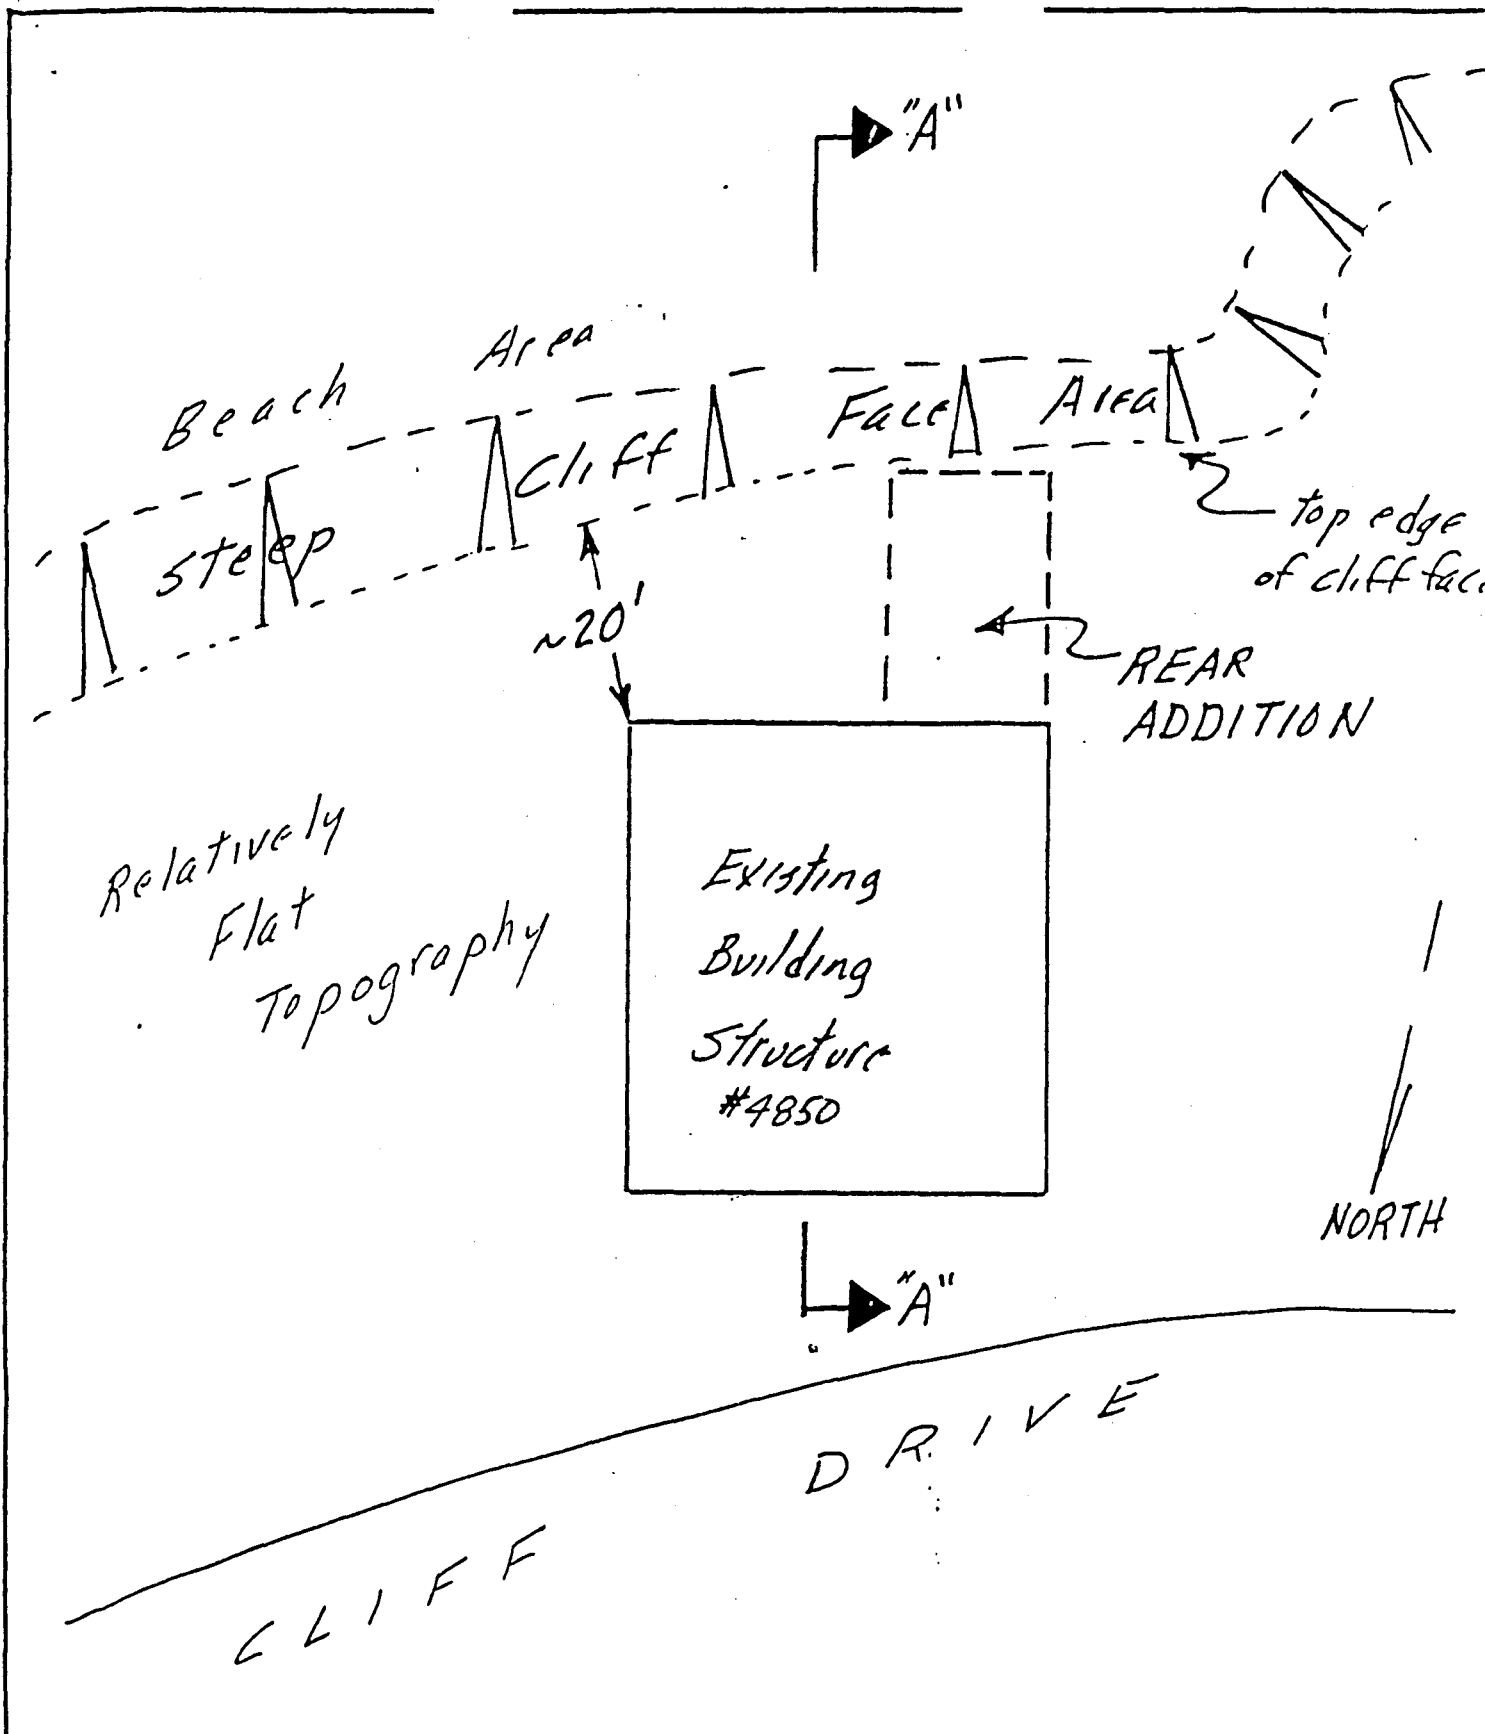 "A"
Beach Area
Steep Cliff Face Area
top edge
of cliff face
~20'
REAR
ADDITION
Relatively
Flat
Topography
Existing
Building
Structure
#4850
NORTH
"A"
CLIFF DRIVE